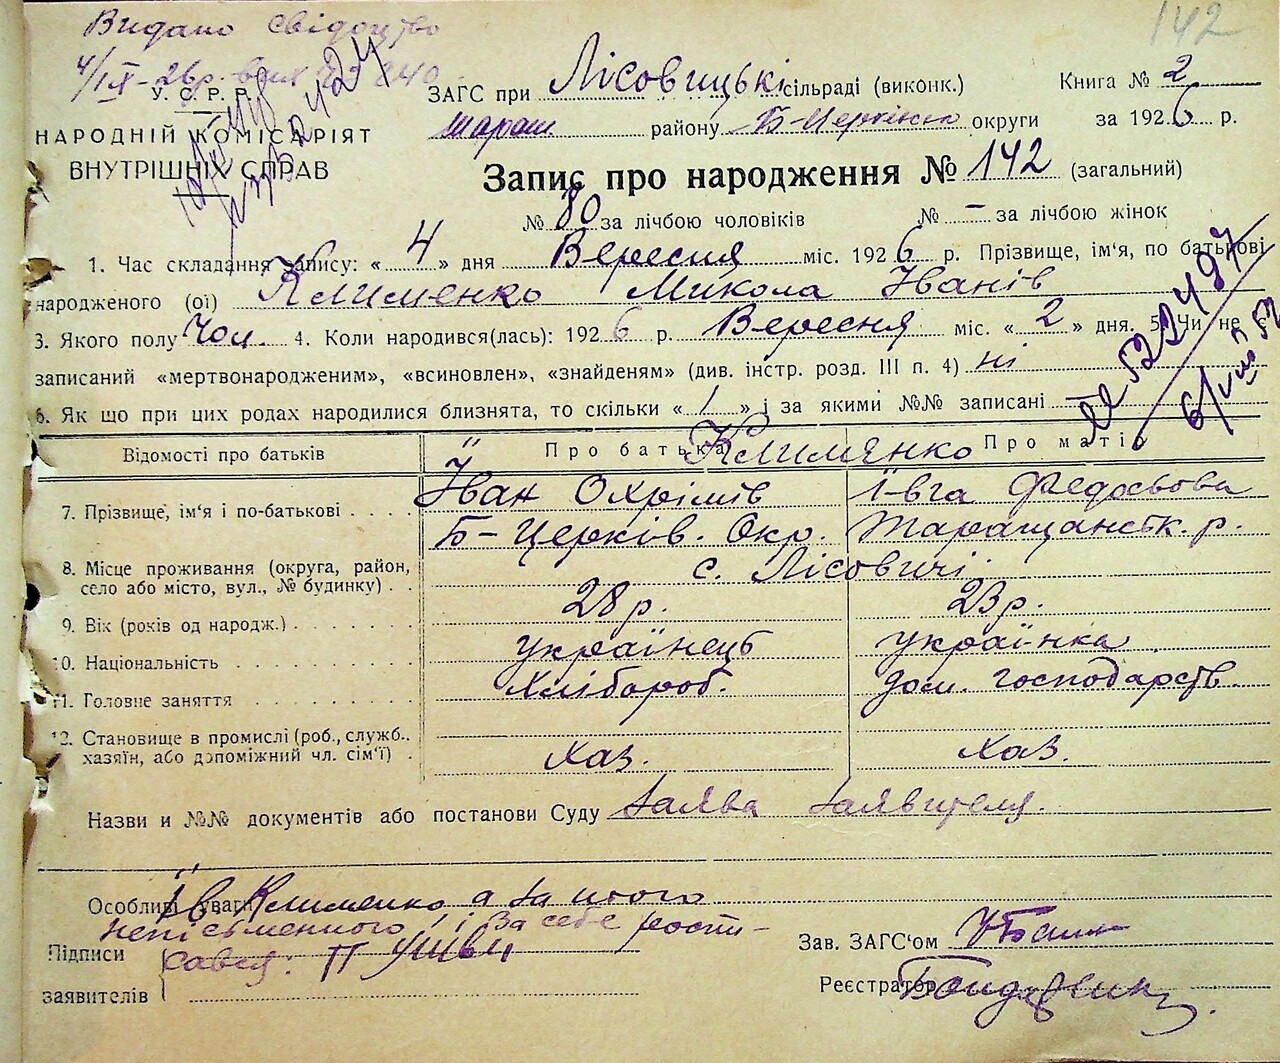 142
Видано свідоцтво
У. С. Р. Р.
НАРОДНІЙ КОМІСАРІЯТ
ВНУТРІШНІХ СПРАВ
ЗАГС при Лісовицькі сільраді (виконк.)
Книга № 2
Тараш району Б-Церківсь округи
за 1926 р.
Запис про народження № 142 (загальний)
№ 80 за лічбою чоловіків № - за лічбою жінок
1. Час складання запису: « 4 » дня Вересня міс. 1926 р. Прізвище, ім'я, по батькові
народженого (ої) Клименко Микола Іванів
3. Якого полу Чол. 4. Коли народився(лась): 1926 р. Вересня міс. « 2 » дня. 5. Чи не є
записаний «мертвонародженим», «всиновлен», «знайденям» (див. інстр. розд. III п. 4) ні
6. Як що при цих родах народилися близнята, то скільки « 1 » і за якими №№ записані
№ 522497
Відомості про батьків Про батька Про матір
Клименко
7. Прізвище, ім'я і по-батькові Іван Охрімів Ївга Федосьова
Б-Церків. Окр. Таращанськ. р.
8. Місце проживання (округа, район, село або місто, вул., № будинку) с. Лісовичі
9. Вік (років од народж.) 28 р. 23 р.
10. Національність українець українка
11. Головне заняття Хлібороб. дом. господарств.
12. Становище в промислі (роб., служб., хазяїн, або допоміжний чл. сім'ї) хаз. хаз.
Назви и №№ документів або постанови Суду Заява Заявителя.
Особливі уваги Ів. Клименко а за нього
непісьменного, і за себе розпи-
Підписи сався:
заявителів
Зав. ЗАГС'ом
Реєстратор